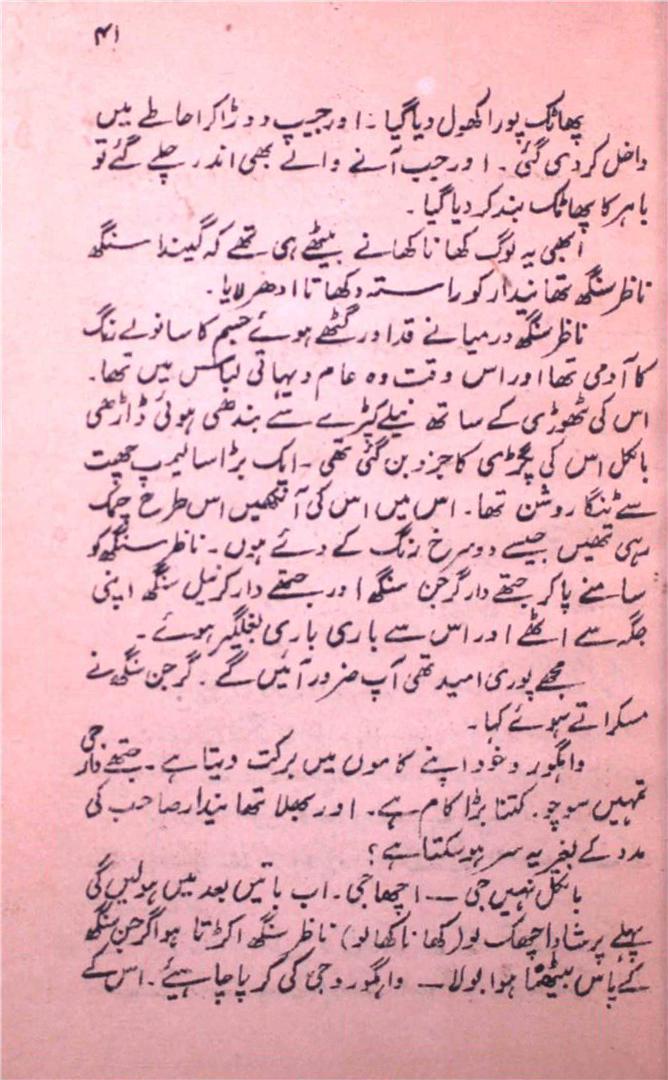 ۴۱
پھاٹک پورا کھول دیا گیا ۔ اور جیپ دوڑا کر احاطے میں
داخل کر دی گئی ۔ اور جب آنے والے بھی اندر چلے گئے تو
باہر کا پھاٹک بند کر دیا گیا ۔
ابھی یہ لوگ کھانا کھانے بیٹھے ہی تھے کہ گیندا سنگھ
ناظر سنگھ تھانیدار کو راستہ دکھاتا ادھر لایا ۔
ناظر سنگھ درمیانے قد اور گٹھے ہوئے جسم کا سانولے رنگ
کا آدمی تھا اور اس وقت وہ عام دیہاتی لباس میں تھا ۔
اس کی ٹھوڑی کے ساتھ نیلے کپڑے سے بندھی ہوئی ڈاڑھی
بالکل اس کی پگڑی کا جزو بن گئی تھی ۔ ایک بڑا سا لیمپ چھت
سے ٹنگا روشن تھا ۔ اس میں اس کی آنکھیں اس طرح چمک
رہی تھیں جیسے دو سرخ رنگ کے دئے ہوں ۔ ناظر سنگھ کو
سامنے پا کر جتھے دار گرجن سنگھ اور جتھے دار کرنیل سنگھ اپنی
جگہ سے اٹھے اور اس سے باری باری بغلگیر ہوئے ۔
مجھے پوری امید تھی آپ ضرور آئیں گے ۔ گرجن سنگھ نے
مسکراتے ہوئے کہا ۔
واہگورو خود اپنے کاموں میں برکت دیتا ہے ۔ جتھے دار جی
تمہیں سوچو ۔ کتنا بڑا کام ہے ۔ اور بھلا تھانیدار صاحب کی
مدد کے بغیر یہ سر ہو سکتا ہے ؟
بالکل نہیں جی ـــ اچھا جی ۔ اب باتیں بعد میں ہولیں گی
پہلے پرشادا چھک لو (کھانا کھا لو) ناظر سنگھ اکڑتا ہوا گرجن سنگھ
کے پاس بیٹھتا ہوا بولا ـــ واہگورو جی کی کرپا چاہیئے ۔ اس کے